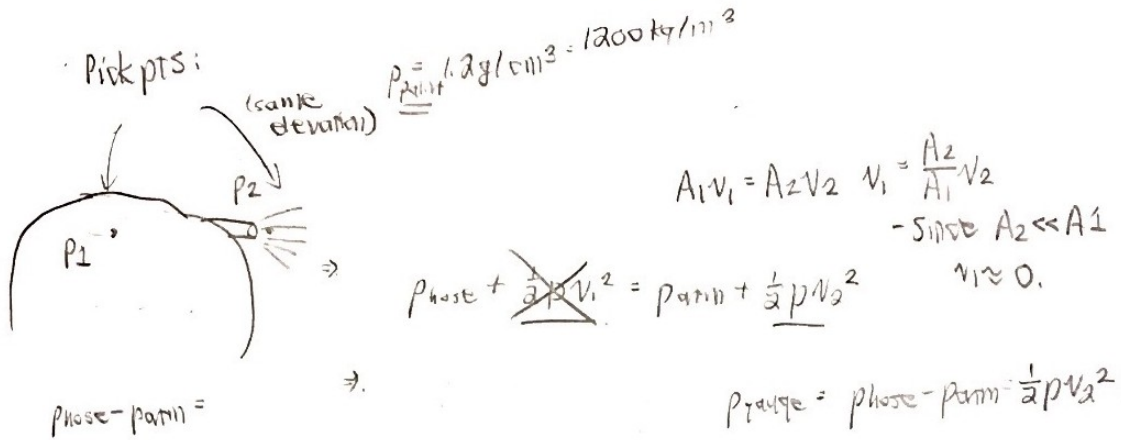 Pick pts:
(same
elevation)
ρpaint = 1.2g/cm³ = 1200 kg/m³
P2
P1
A₁v₁ = A₂v₂ v₁ = A₂/A₁ v₂
- Since A₂ << A1
v₁ ≈ 0.
⇒ Phose + ½ρv₁² = Patm + ½ρv₂²
⇒.
Phose - Patm =
Pgauge = Phose - Patm = ½ρv₂²